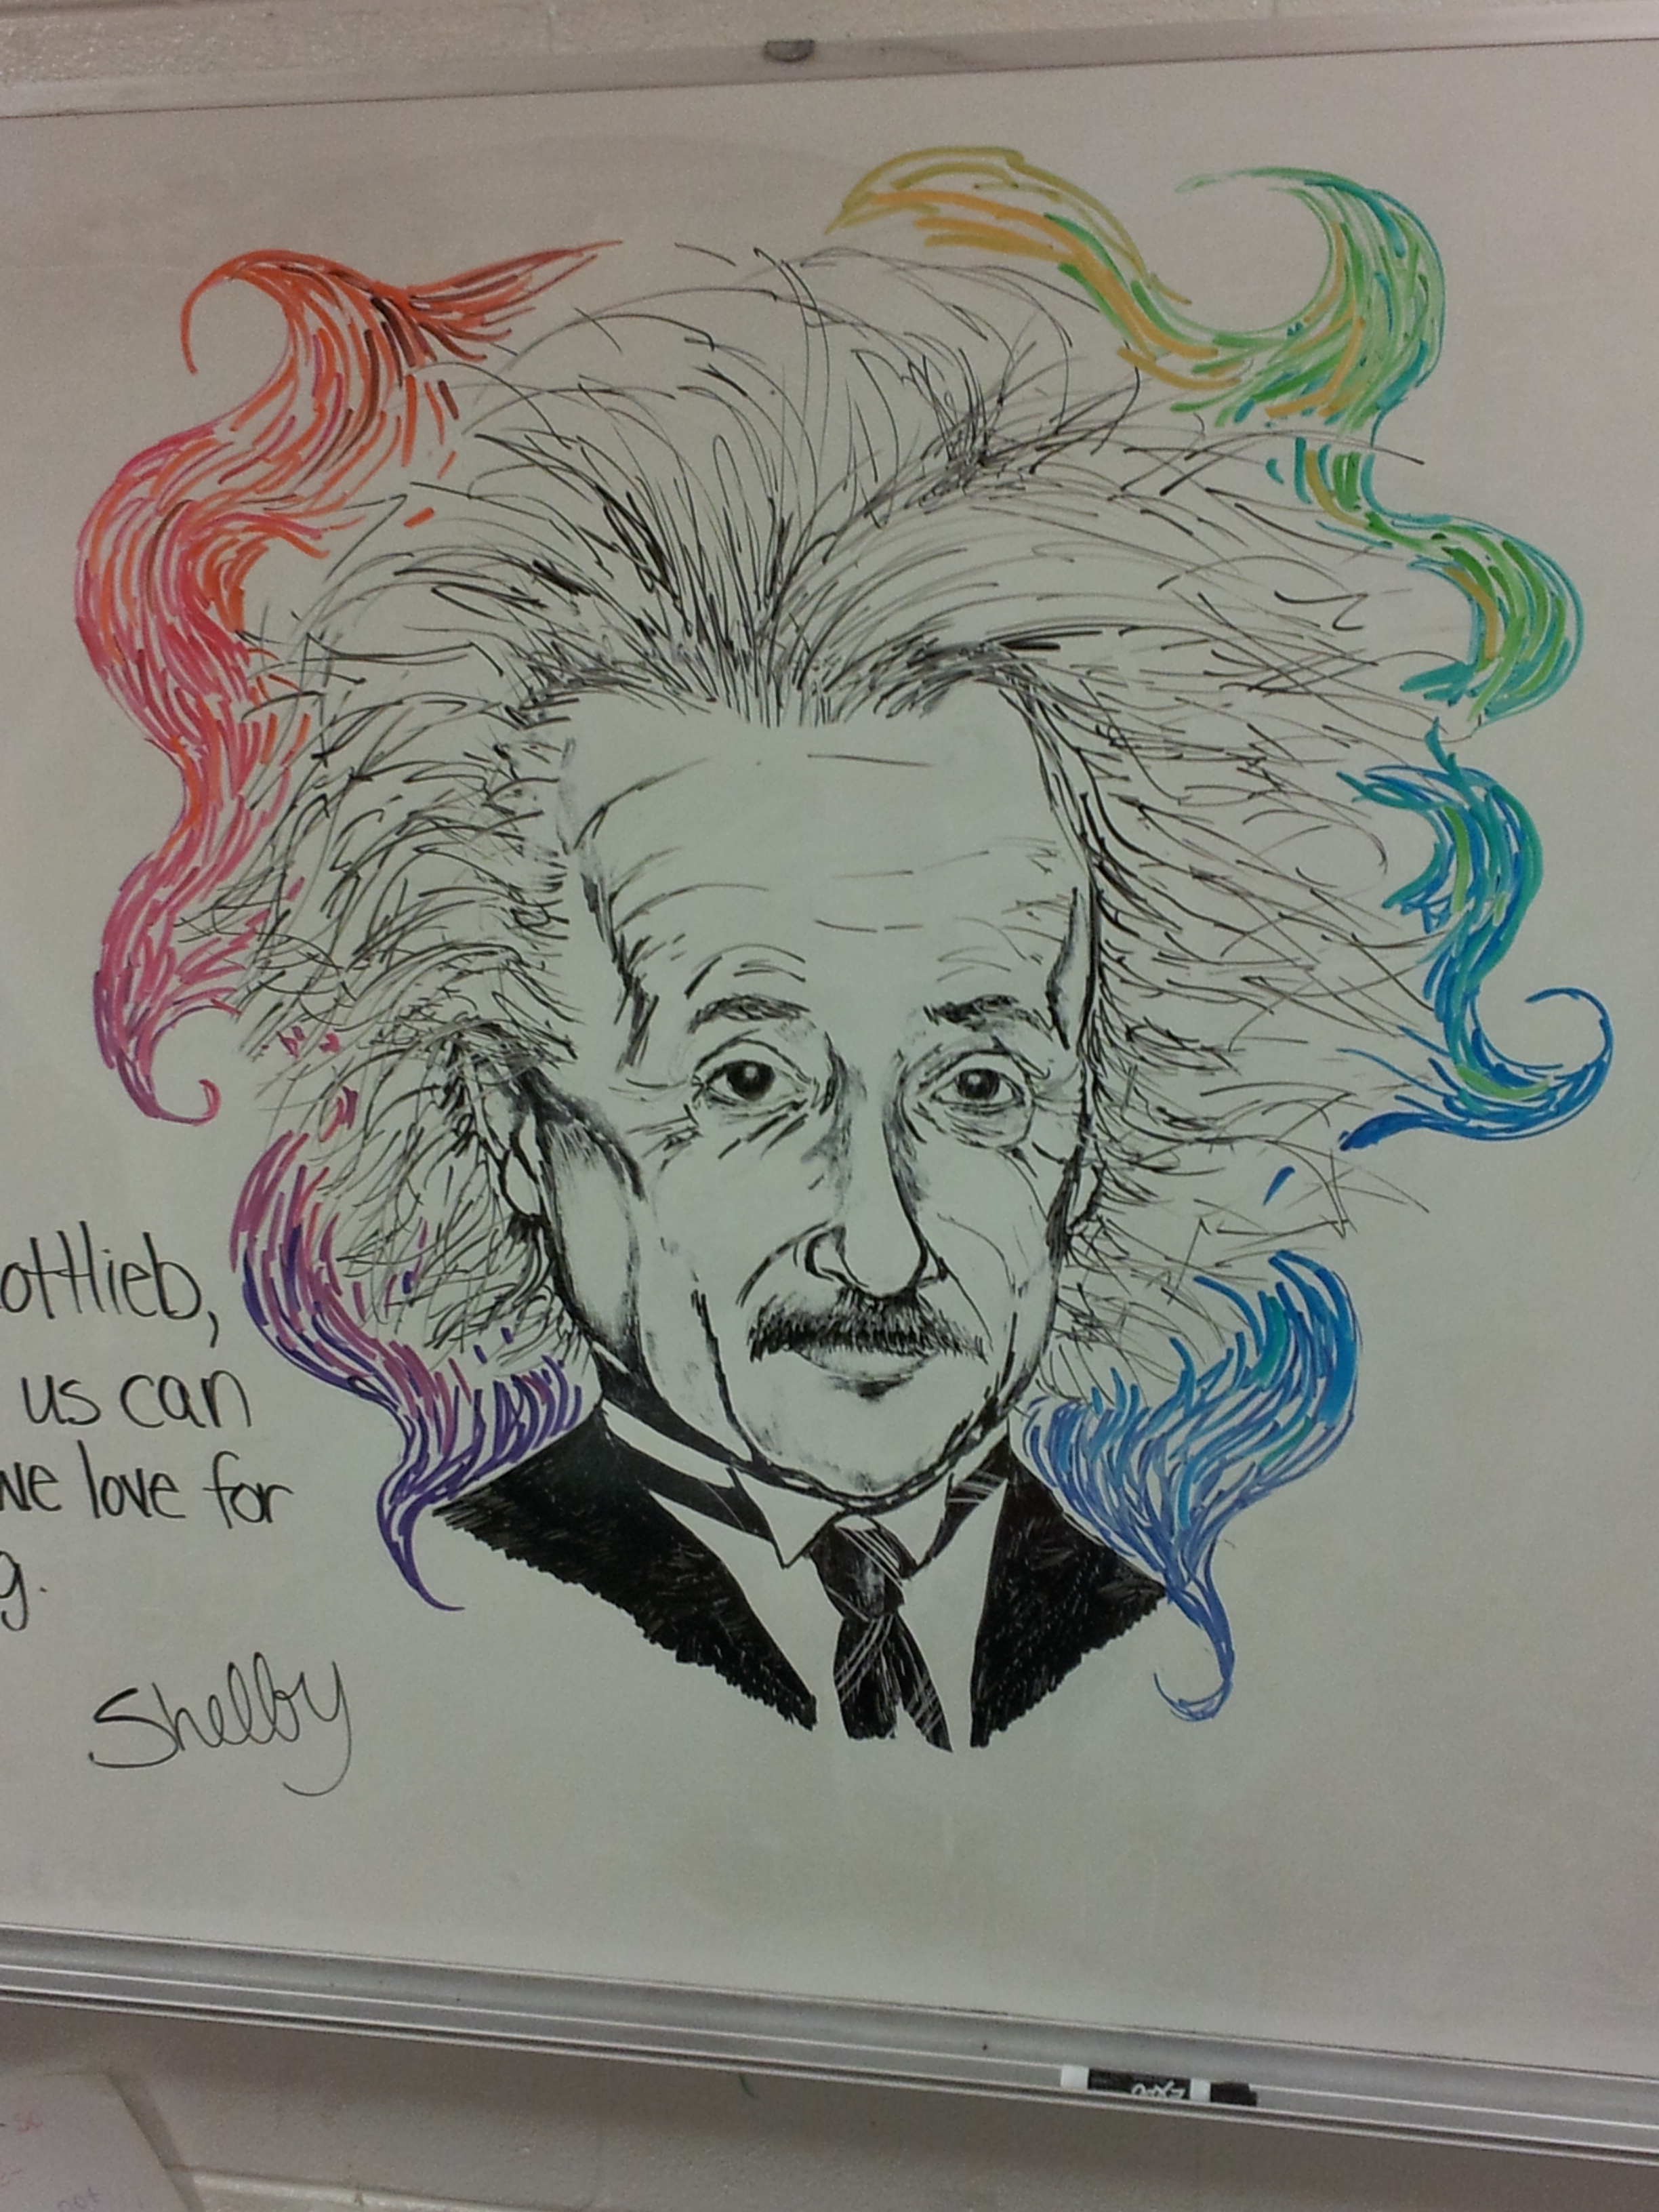 ottlieb,
us can
we love for
g.
Shelby
EXPO